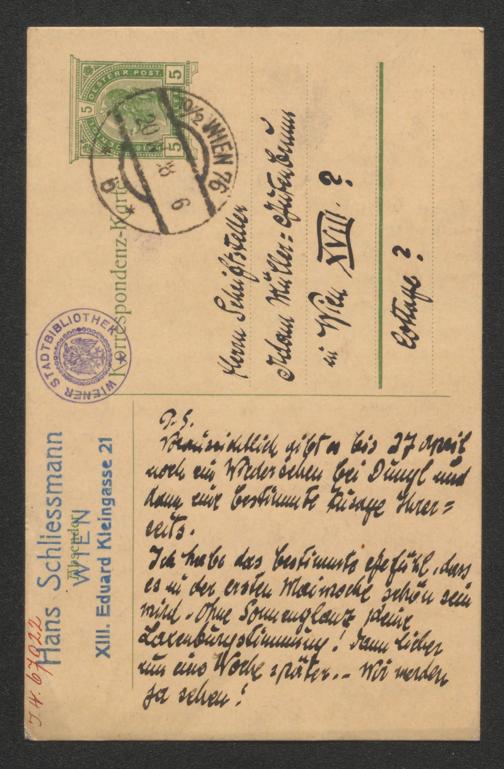 OESTERR. POST.
5 5
5 5
10/2 WIEN 76
20 8 6
* b *
Korrespondenz-Karte
WIENER STADTBIBLIOTHEK
Hans Schliessmann
Absender
WIEN
XIII. Eduard Kleingasse 21
J. N. 67922
Herrn Schriftsteller
Adam Müller=Guttenbrunn
in Wien XVIII. ?
Cottage ?
P. S.
Voraussichtlich gibt es bis 27 April
noch ein Wiedersehen bei Dungl und
dann eine bestimmte Zusage Ihrer=
seits.
Ich habe das bestimmte Gefühl, dass
es in der ersten Maiwoche schön sein
wird. Ohne Sonnenglanz keine
Laxenburgstimmung! Dann lieber
um eine Woche später. – Wir werden
ja sehen!